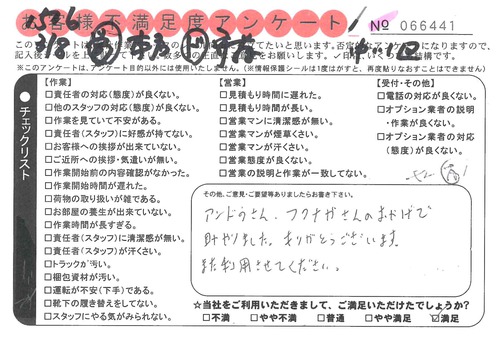 お客様不満足度アンケート
No 066441
※このアンケートは、アンケート目的以外には使用いたしません。(※情報保護シールは1度はがすと、再度貼りなおすことはできません)
チェックリスト
【作業】
□責任者の対応(態度)が良くない。
□他のスタッフの対応(態度)が良くない。
□作業を見ていて不安がある。
□責任者(スタッフ)に好感が持てない。
□お客様への挨拶が出来ていない。
□ご近所への挨拶・気遣いが無い。
□作業開始前の内容確認がなかった。
□作業開始時間が遅れた。
□荷物の取り扱いが雑である。
□お部屋の養生が出来ていない。
□作業時間が長すぎる。
□責任者(スタッフ)に清潔感が無い。
□責任者(スタッフ)が汗くさい。
□トラックが汚い。
□梱包資材が汚い。
□運転が不安(下手)である。
□靴下の履き替えをしてない。
□スタッフにやる気がみられない。
【営業】
□見積もり時間に遅れた。
□見積もり時間が長い。
□営業マンに清潔感が無い。
□営業マンが煙草くさい。
□営業マンが汗くさい。
□営業態度が良くない。
□営業の説明と作業が一致してない。
【受付・その他】
□電話の対応が良くない。
□オプション業者の説明・作業が良くない。
□オプション業者の対応(態度)が良くない。
その他、ご意見・ご要望等ありましたらお書き下さい。
アンドウさん、フクナガさんのおかげで
助かりました。ありがとうございます。
また利用させてください。
☆当社をご利用いただきまして、ご満足いただけたでしょうか?
□不満 □やや不満 □普通 □やや満足 ☑満足